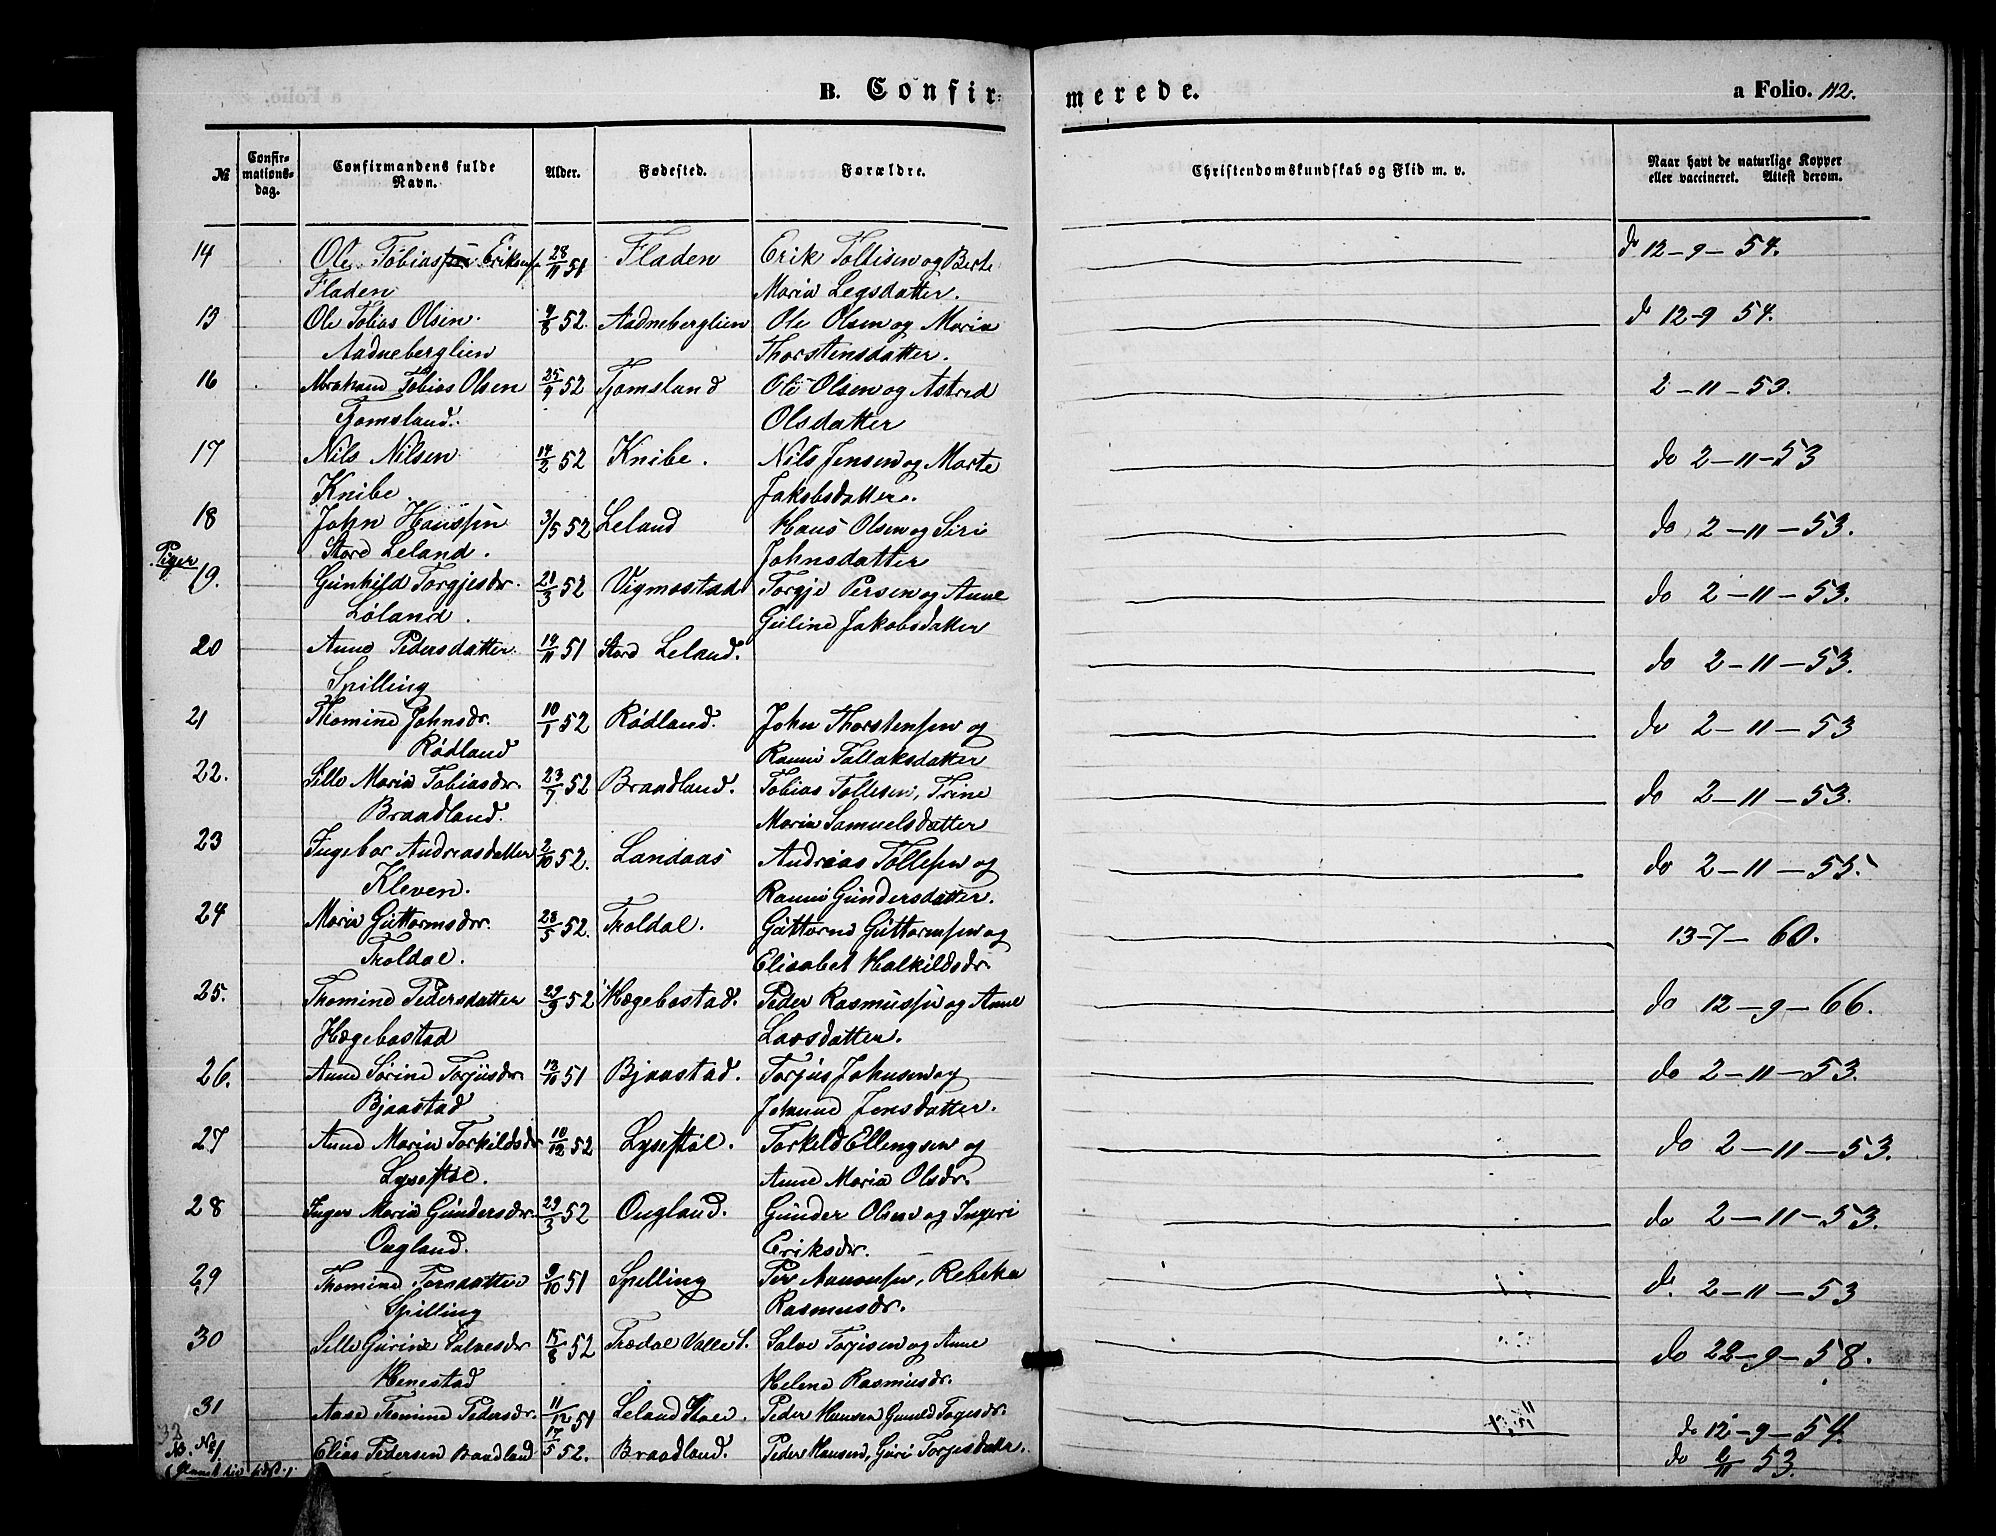 B. Confir-
merede.
a Folio. 112.
№
Confir-
mations-
dag.
Confirmandens fulde
Navn.
Alder.
Fødested.
Forældre.
Christendomskundskab og Flid m. v.
Naar havt de naturlige Kopper
eller vaccineret. Attest derom.
14 Ole Tobias Eriksen 28/11 51 Fladen Erik Tollisen og Berte do 12-9-54.
Fladen Maria Legsdatter.
15 Ole Tobias Olsen. 4/8 52. Aadneberglien Ole Olsen og Maria do 12-9 54.
Aadneberglien Thorstensdatter.
16 Abraham Tobias Olsen 25/9 52 Tjomsland Ole Olsen og Astrid 2-11-53.
Tjomsland. Olsdatter
17 Nils Nilsen 14/2 52 Knibe. Nils Jensen og Marte do 2-11-53
Knibe. Jakobsdatter.
18 John Hanssen 3/5 52 Leland Hans Olsen og Siri do 2-11-53.
Stord Leland. Johnsdatter
Piger
19. Gunhild Torgjesdr. 21/3 52 Vigmostad Torgje Persen og Anne do 2-11-53.
Løland. Guline Jakobsdatter
20 Anne Pedersdatter 19/11 51 Stord Leland. do 2-11-53.
Spilling
21 Thomine Johnsdr. 10/1 52 Rødland. John Thorstensen og do 2-11-53
Rødland Ranni Tallaksdatter
22. Sille Maria Tobiasdr. 23/7 52 Braadland. Tobias Tollesen, Trine do 2-11-53.
Braadland. Maria Samuelsdatter
23 Ingebor Andreasdatter 2/10 52. Landaas Andreas Tollesen og do 2-11-55.
Kleven. Ranni Gundersdatter.
24 Maria Guttormsdr. 28/5 52. Troldal. Guttorm Guttormsen og 13-7-60.
Troldal. Elisabet Halkildsdr.
25. Thomine Pedersdatter 29/9 52 Hægebostad. Peder Rasmussen og Anne do 12-9-66.
Hægebostad Larsdatter.
26. Anne Sorine Torjusdr 13/10 51 Bjaastad. Torjus Johnsen og do 2-11-53.
Bjaastad Johanne Jensdatter.
27 Anne Maria Torkildsdr 10/12 52 Lysestøl. Torkild Ellengsen og do 2-11-53.
Lysestøl. Anne Maria Olsdr.
28 Inger Maria Gundersdr. 29/3 52 Ougland. Gunder Olsen og Ingeri do 2-11-53.
Ougland. Eriksdr.
29 Thomine Persdatter 9/10 51 Spilling Per Aanonsen, Rebeka do. 2-11-53
Spilling Rasmusdr.
30 Sille Gurine Salvesdr 15/8 52 Trædal Valle S. Salve Torjisen og Anne do 22-9-58.
Henestad Helene Rasmusdr.
31 Aase Tomine Pedersdr. 11/12 51 Leland Peder Hansen Gunild Tagesdr. do 12-9-54.
32
No. 1. Elias Pedersen Braadland 17/5 52. Braadland. Peder Hansen, Guri Torjesdatter. do 2/11 53.